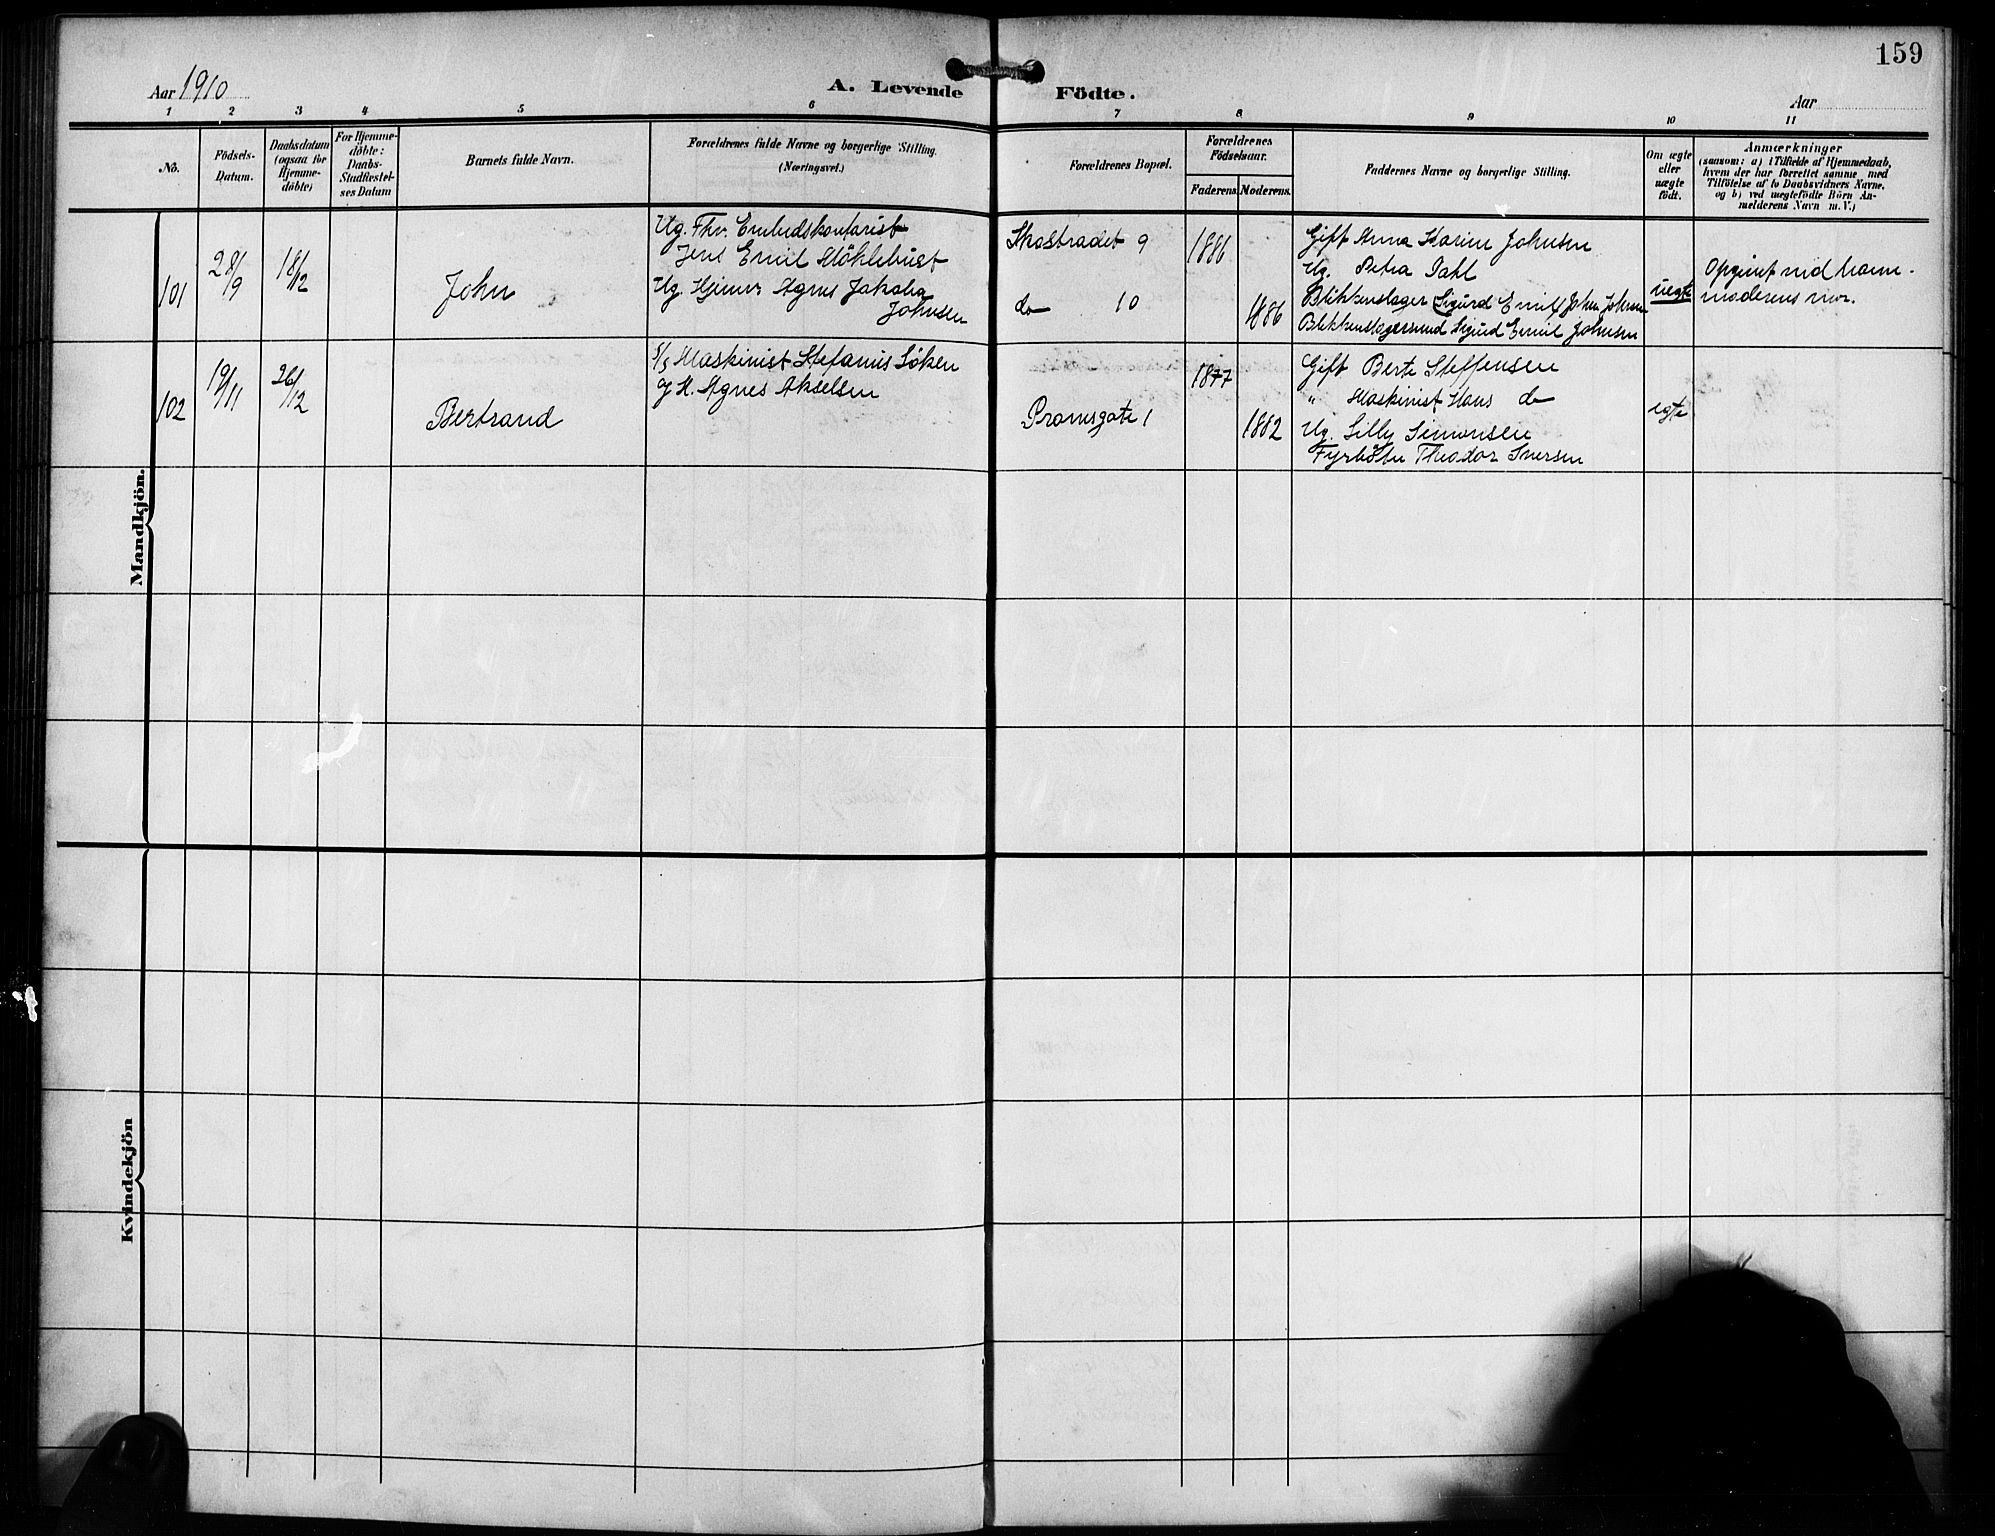 159
Aar 1910
A. Levende Födte.
Aar
1 2 3 4 5 6 7 8 9 10 11
No.
Födsels-
Datum.
Daabsdatum
(ogsaa for
Hjemme-
döbte)
For Hjemme-
döbte:
Daabs-
Stadfæstel-
ses Datum
Barnets fulde Navn.
Forældrenes fulde Navne og borgerlige Stilling.
(Næringsvei.)
Forældrenes Bopæl.
Forældrenes
Födselsaar.
Faderens. Moderens.
Faddernes Navne og borgerlige Stilling.
Om ægte
eller
uægte
födt.
Anmærkninger
(saasom: a) i Tilfælde af Hjemmedaab,
hvem der har forrettet samme med
Tilföielse af to Daabsvidners Navne,
og b) ved uægtefödte Börn An-
melderens Navn m. V.)
Mandkjön.
101
28/9
18/12
John
Ug. Fhv. Embudskontorist
Jens Emil
Ug. Hjemv Agnes Jakoba
Johnsen
Skostradet 9
do 10
1886
1886
Gift Anna Karine Johnsen
Ug. Petra Dahl
Blikkenslager Sigurd Emil Johan Johnsen
Blikkenslagersvend Sigurd Emil Johnsen
uegte
Opgivet ved barne-
moderens mor.
102
19/11
26/12
Bertrand
Maskinist Stefanus Söken
og H. Agnes Akselsen
Pramsgate 1
1877
1882
Gift Berte Steffensen
" Maskinist Hans do
Ug. Lilly Simonsen
Fyrböter Theodor Iversen
egte
Kvindekjön